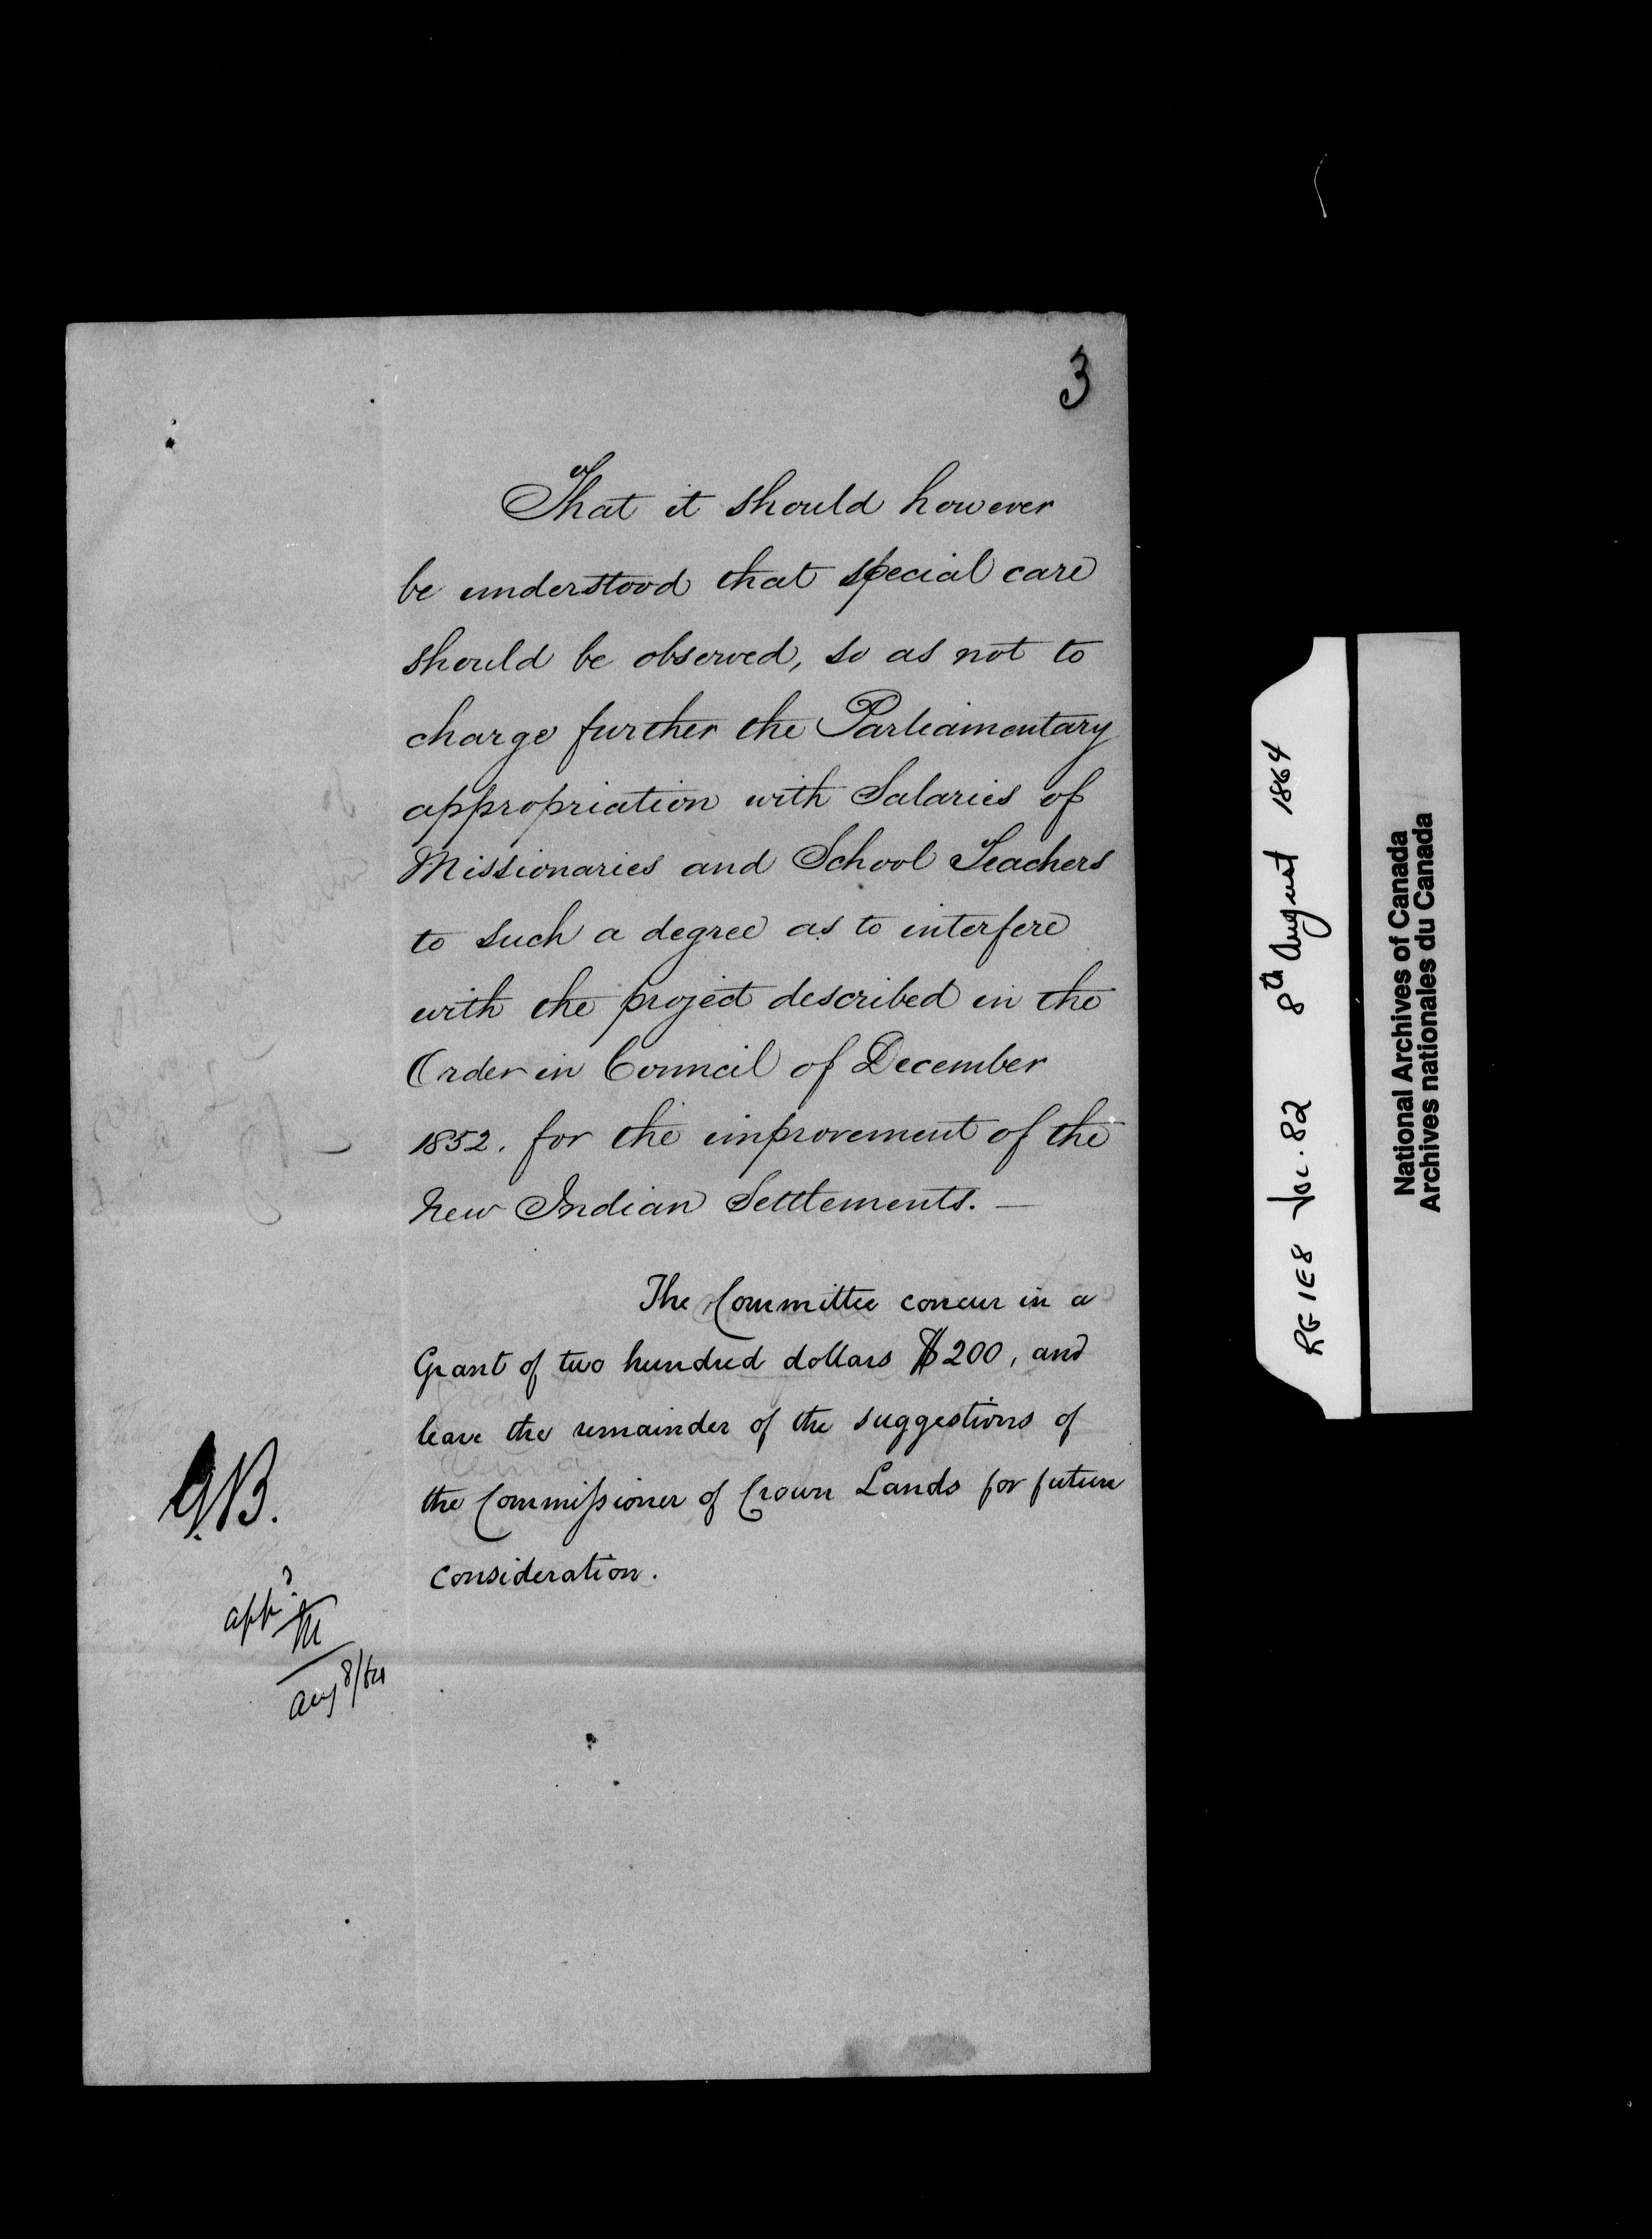 3
That it should however
be understood that special care
should be observed, so as not to
charge further the Parliamentary
appropriation with Salaries of
Missionaries and School Teachers
to such a degree as to interfere
with the project described in the
Order in Council of December
1852. for the improvement of the
New Indian Settlements. —
The Committee concur in a
Grant of two hundred dollars $200, and
leave the remainder of the suggestions of
the Commissioner of Crown Lands for future
consideration.
G.B.
appd.
M
Aug 8/64
RG 1E8 Vol. 82 8th August 1864
National Archives of Canada
Archives nationales du Canada